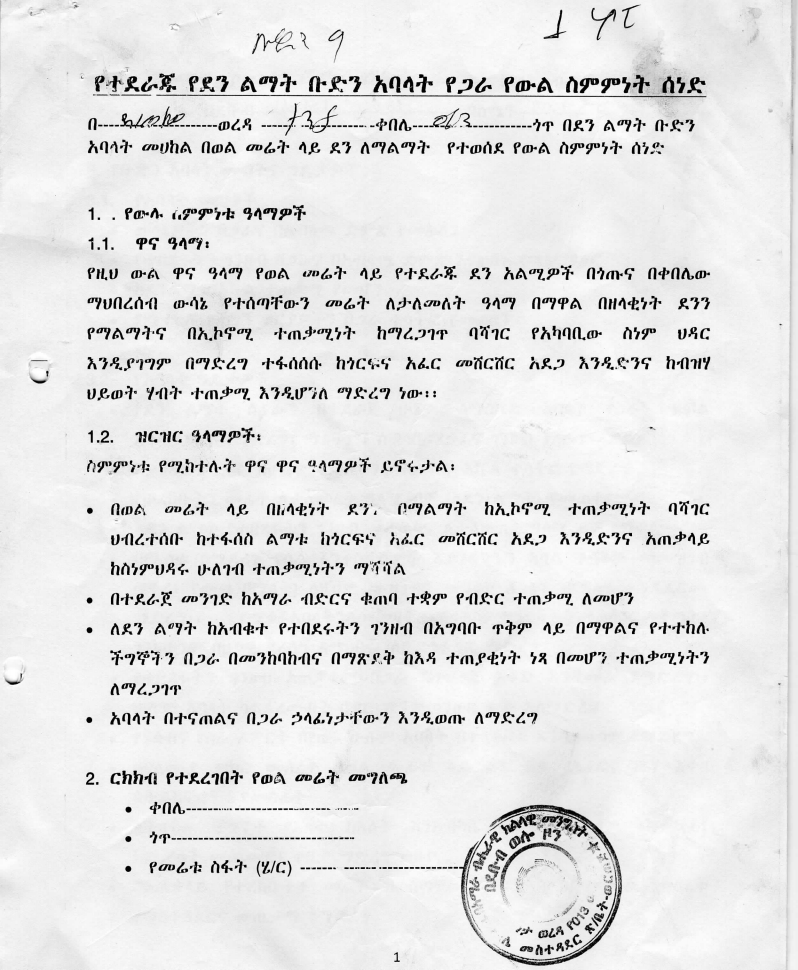 የተደራጁ የደን ልማት ቡድን አባላት የጋራ የውል ስምምነት ሰነድ
በ------------------ወረዳ ------------------ቀበሌ------------------ጎጥ በደን ልማት ቡድን
አባላት መሀከል በወል መሬት ላይ ደን ለማልማት የተወሰደ የውል ስምምነት ሰነድ
1. . የውሉ ስምምነቱ ዓላማዎች
1.1. ዋና ዓላማ፡
የዚህ ውል ዋና ዓላማ የወል መሬት ላይ የተደራጁ ደን አልሚዎች በጎጡና በቀበሌው
ማህበረሰብ ውሳኔ የተሰጣቸውን መሬት ለታለመለት ዓላማ በማዋል በዘላቂነት ደንን
የማልማትና በኢኮኖሚ ተጠቃሚነት ከማረጋገጥ ባሻገር የአካባቢው ስነም ህዳር
እንዲያገግም በማድረግ ተፋሰሰሱ ከጎርፍና አፈር መሸርሸር አደጋ እንዲድንና ከብዝሃ
ህይወት ሃብት ተጠቃሚ እንዲሆንለ ማድረግ ነው፡፡
1.2. ዝርዝር ዓላማዎች፡
ስምምነቱ የሚከተሉት ዋና ዋና ዓላማዎች ይኖሩታል፡
• በወል መሬት ላይ በዘላቂነት ደን በማልማት ከኢኮኖሚ ተጠቃሚነት ባሻገር
ህብረተሰቡ ከተፋሰስ ልማቱ ከጎርፍና አፈር መሸርሸር አደጋ እንዲድንና አጠቃላይ
ከስነምህዳሩ ሁለገብ ተጠቃሚነትን ማሻሻል
• በተደራጀ መንገድ ከአማራ ብድርና ቁጠባ ተቋም የብድር ተጠቃሚ ለመሆን
• ለደን ልማት ከአብቁተ የተበደሩትን ገንዘብ በአግባቡ ጥቅም ላይ በማዋልና የተተከሉ
ችግኞችን በጋራ በመንከባከብና በማጽደቅ ከእዳ ተጠያቂነት ነጻ በመሆን ተጠቃሚነትን
ለማረጋገጥ
• አባላት በተናጠልና በጋራ ኃላፊነታቸውን እንዲወጡ ለማድረግ
2. ርክክብ የተደረገበት የወል መሬት መግለጫ
• ቀበሌ--------------------------
• ጎጥ----------------------------
• የመሬቱ ስፋት (ሄ/ር) ------ ------------------
በደቡብ ወሎ ዞን
1